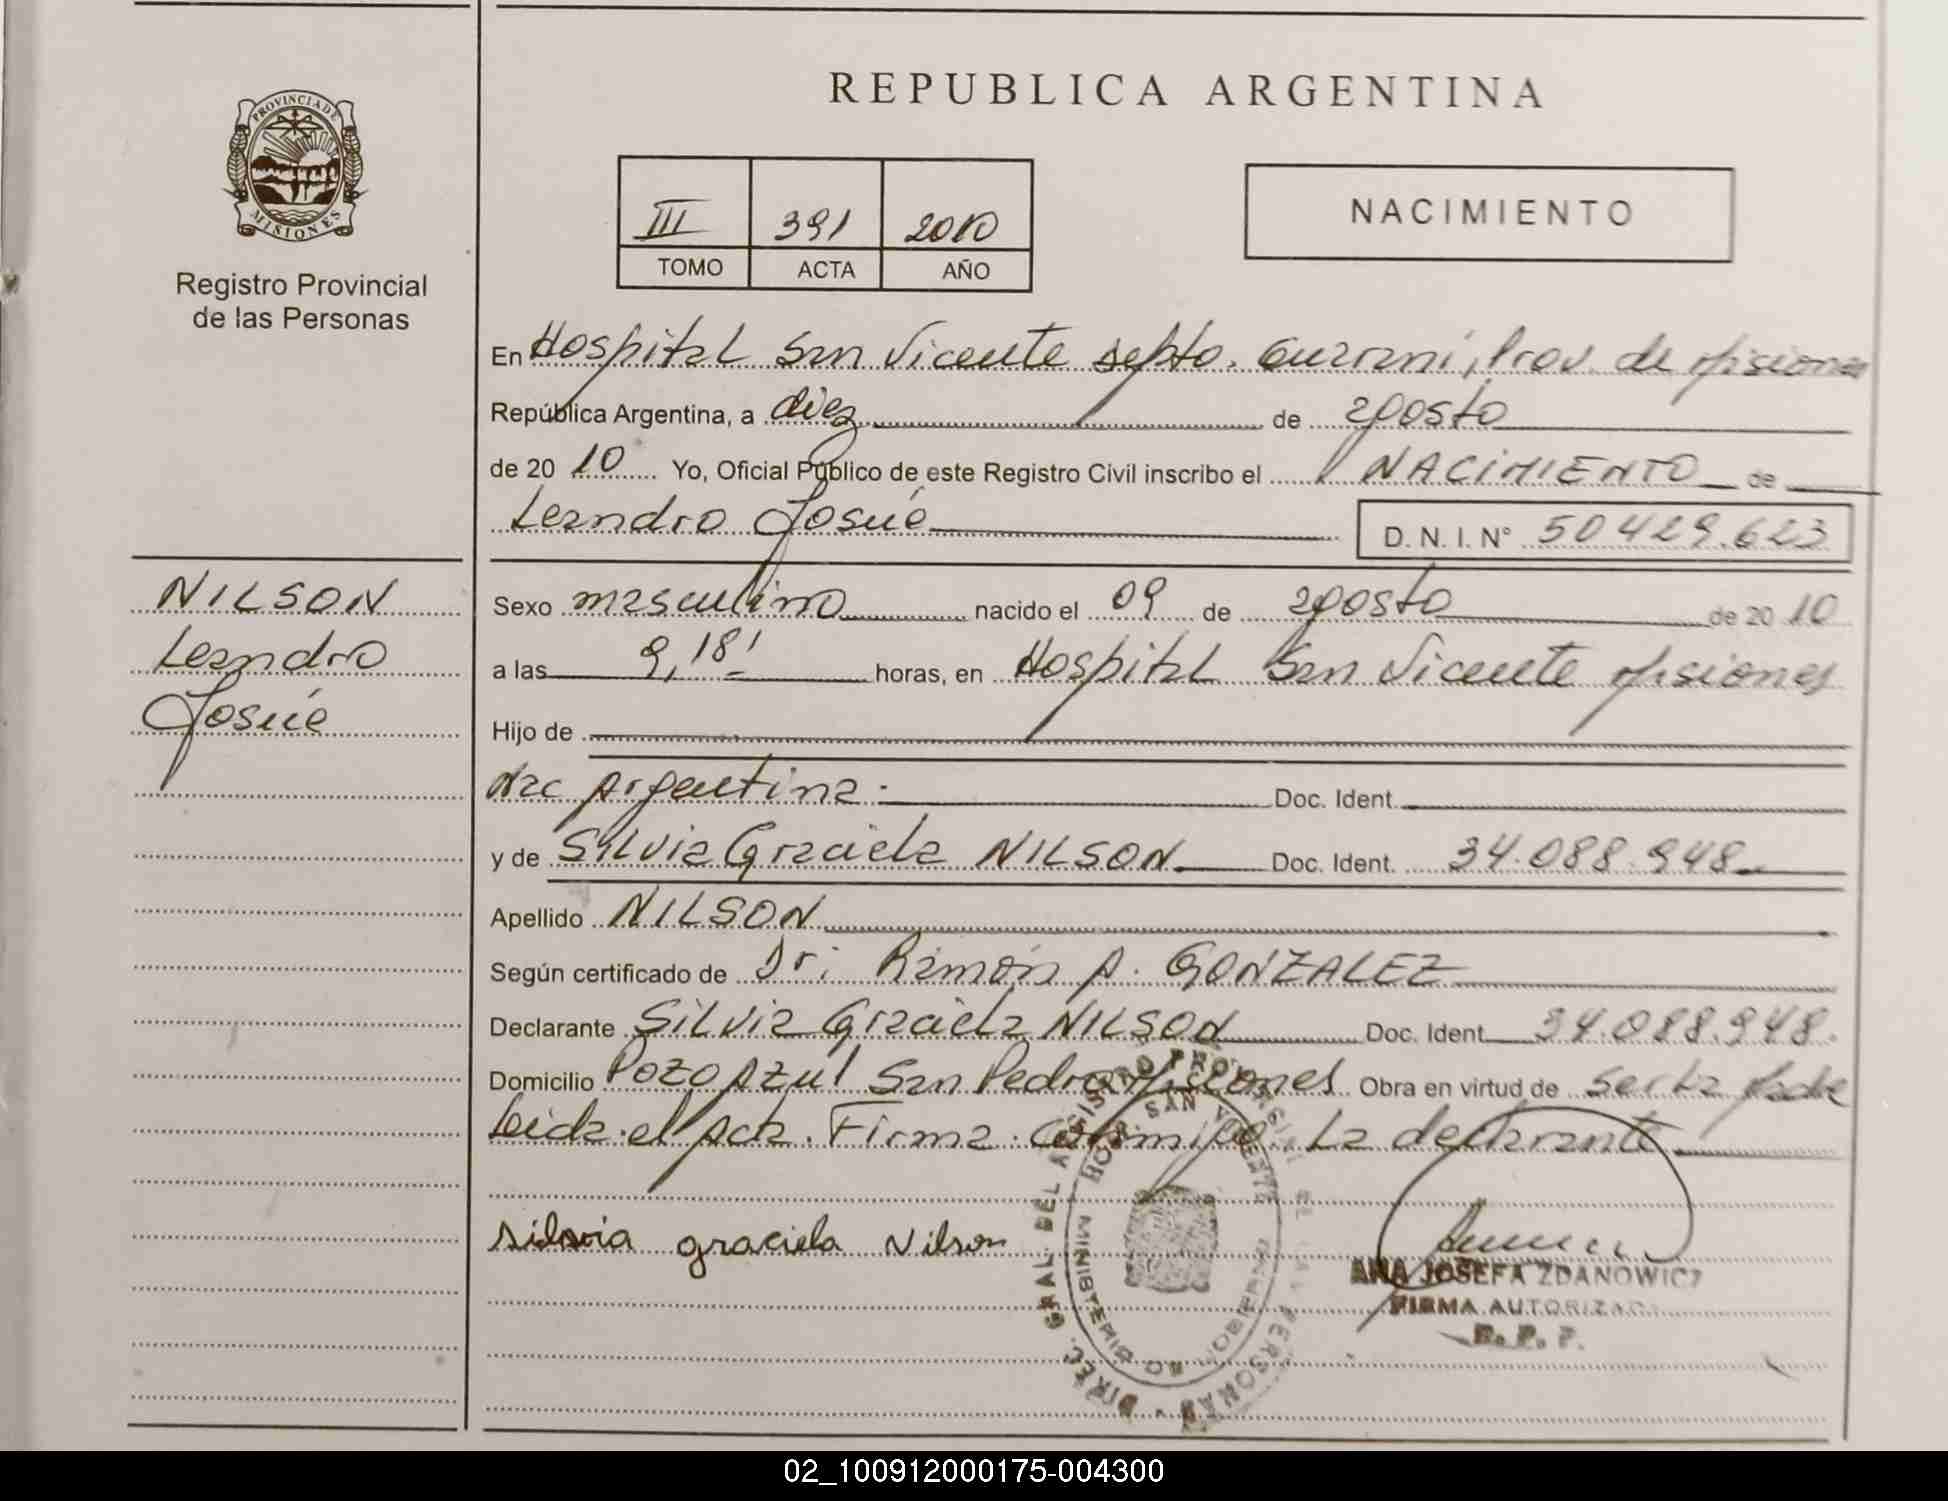 REPUBLICA ARGENTINA
PROVINCIA DE
MISIONES
Registro Provincial
de las Personas
III 391 2010
TOMO ACTA AÑO
NACIMIENTO
En Hospital San Vicente Depto. Guarani, Prov. de Misiones
República Argentina, a diez de agosto
de 2010 Yo, Oficial Público de este Registro Civil inscribo el NACIMIENTO de
Leandro Josué D. N. I. N° 50429.623
NILSON
Leandro
Josué
Sexo masculino nacido el 09 de agosto de 2010
a las 9,18' horas, en Hospital San Vicente Misiones
Hijo de
Nac Argentina. Doc. Ident.
y de Silvia Graciela NILSON Doc. Ident. 34.088.948
Apellido NILSON
Según certificado de Dr. Ramón A. GONZALEZ
Declarante Silvia Graciela NILSON Doc. Ident. 34.088.948.
Domicilio Pozo Azul San Pedro Misiones Obra en virtud de ser la Madre
Leida el Acta. Firma conmigo. La declarante
silvia graciela Nilson
HOSP. SAN VICENTE
MINISTERIO DE GOBIERNO
ANA JOSEFA ZDANOWICZ
FIRMA AUTORIZADA
R. P. P.
02_100912000175-004300